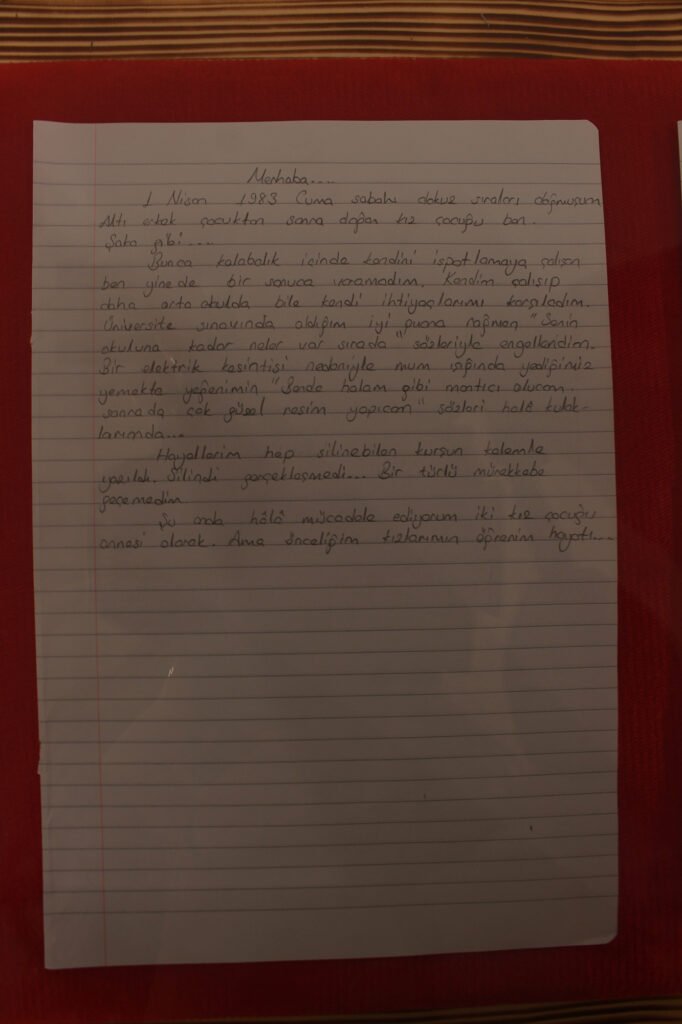 Merhaba....
1 Nisan 1983 Cuma sabahı dokuz sıraları doğmuşum
Altı erkek çocuktan sonra doğan kız çocuğu ben.
Şaka gibi....
Bunca kalabalık içinde kendini ispotlamaya çalışan
ben yinede bir sonuca varamadım. Kendim çalışıp
daha orta okulda bile kendi ihtiyaçlarımı karşıladım.
Üniversite sınavında aldığım iyi puana rağmen "Senin
okuluna kadar neler var sırada" sözleriyle engellendim.
Bir elektrik kesintisi nedeniyle mum ışığında yediğimiz
yemekte yeğenimin "Bende halam gibi mantıcı olucam.
sonrada çok güzel resim yapıcam" sözleri halâ kulak-
larımda...
Hayallerim hep silinebilen kurşun kalemle
yazıldı. Silindi gerçekleşmedi... Bir türlü mürekkebe
geçemedim.
Şu anda hâlâ mücadele ediyorum iki kız çocuğu
annesi olarak. Ama önceliğim kızlarımın öğrenim hayatı...